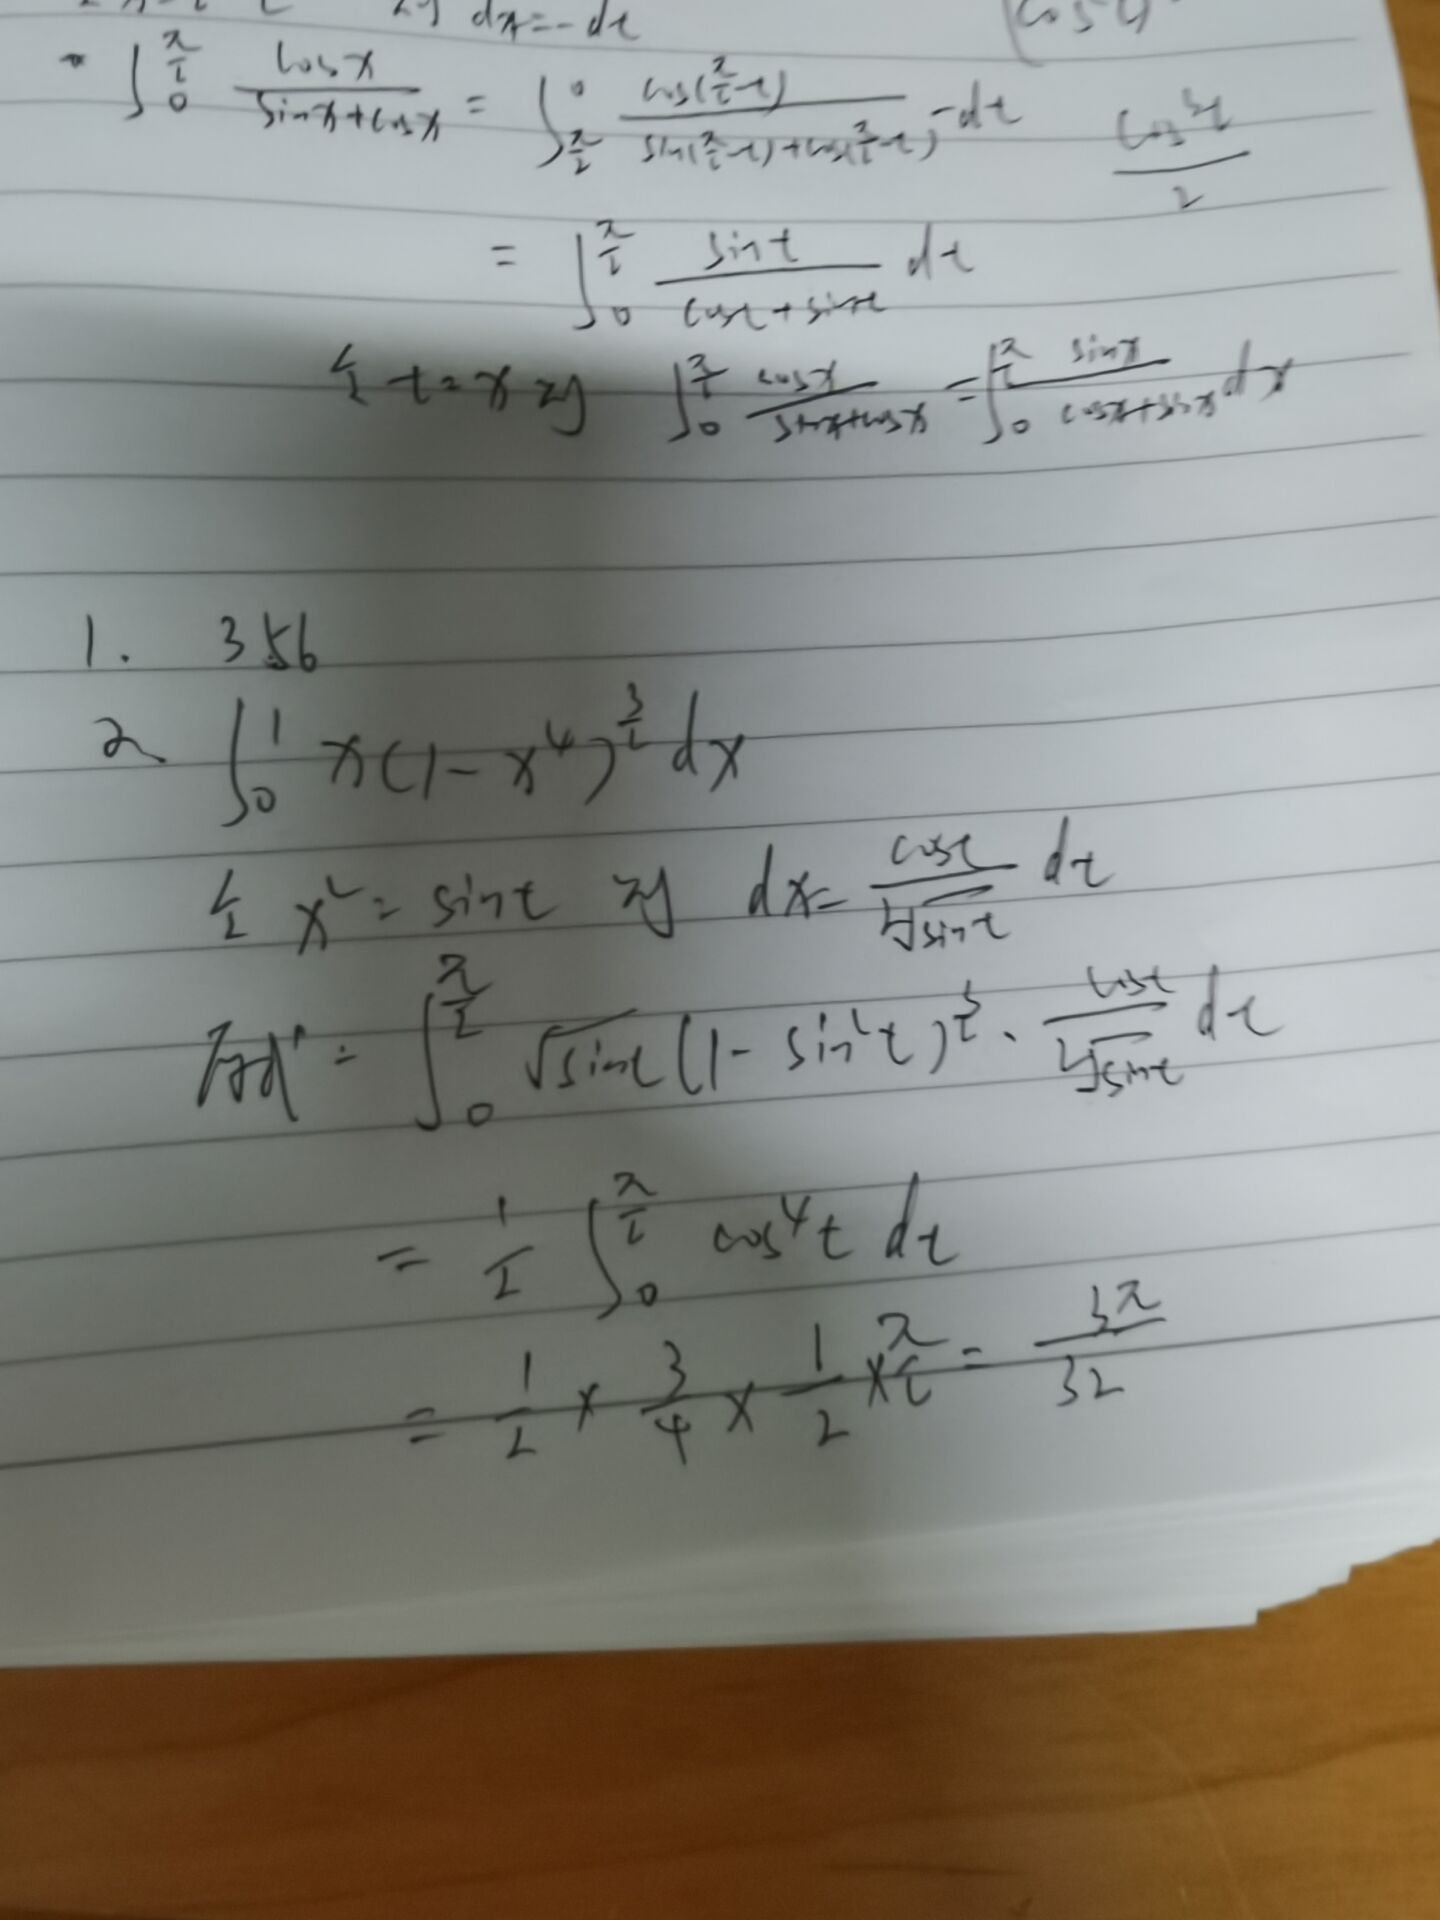 dx=-dt
∫_0^{π/2} cosx/(sinx+cosx) = ∫_{π/2}^0 cos(π/2-t)/(sin(π/2-t)+cos(π/2-t)) -dt
cos³t/2
= ∫_0^{π/2} sint/(cost+sint) dt
令 t=x 则 ∫_0^{π/2} cosx/(sinx+cosx) = ∫_0^{π/2} sinx/(cosx+sinx) dx
1. 356
2 ∫_0^1 x(1-x⁴)^{3/2} dx
令 x²=sint 则 dx= cost/(2√sint) dt
原式= ∫_0^{π/2} √sint (1-sin²t)^{3/2} · cost/(2√sint) dt
= 1/2 ∫_0^{π/2} cos⁴t dt
= 1/2 × 3/4 × 1/2 × π/2 = 3π/32